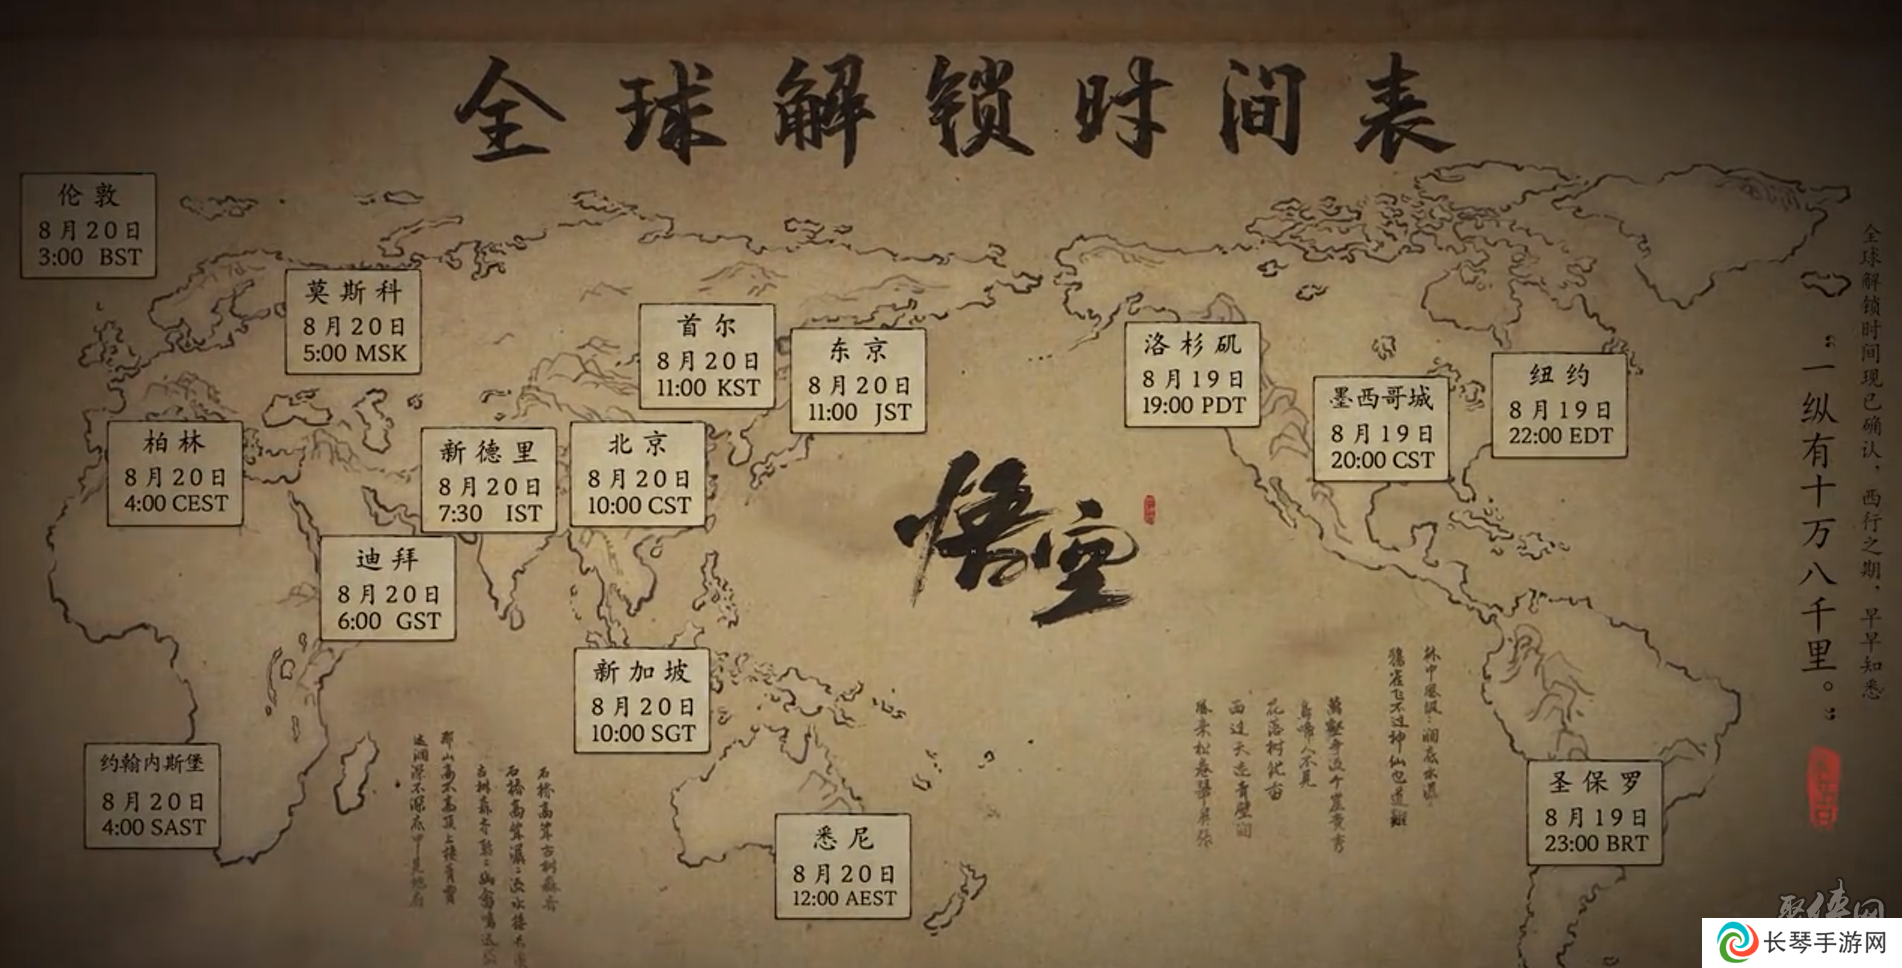 全球解锁时间表
伦敦
8月20日
3:00 BST
莫斯科
8月20日
5:00 MSK
首尔
8月20日
11:00 KST
东京
8月20日
11:00 JST
洛杉矶
8月19日
19:00 PDT
墨西哥城
8月19日
20:00 CST
纽约
8月19日
22:00 EDT
柏林
8月20日
4:00 CEST
新德里
8月20日
7:30 IST
北京
8月20日
10:00 CST
迪拜
8月20日
6:00 GST
悟空
新加坡
8月20日
10:00 SGT
约翰内斯堡
8月20日
4:00 SAST
悉尼
8月20日
12:00 AEST
圣保罗
8月19日
23:00 BRT
全球解锁时间现已确认，西行之期，早早知悉
：一纵有十万八千里。：
聚侠网
长琴手游网